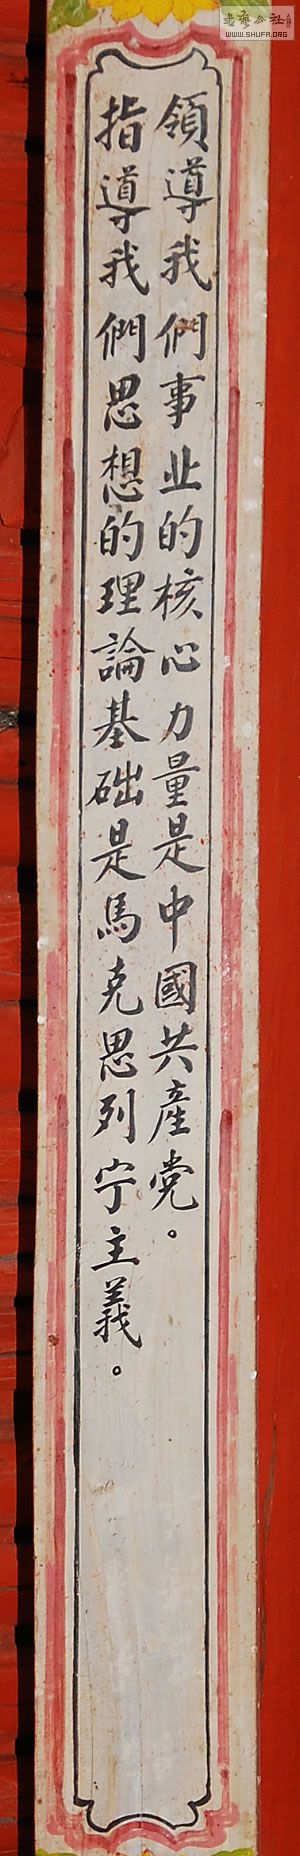 領導我們事业的核心力量是中國共產党。
指導我們思想的理論基础是馬克思列宁主義。
WWW.SHUFA.ORG